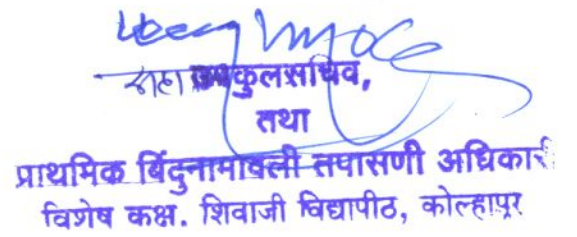 उपकुलसचिव,
तथा
प्राथमिक बिंदुनामावली तपासणी अधिकारी
विशेष कक्ष. शिवाजी विद्यापीठ, कोल्हापूर